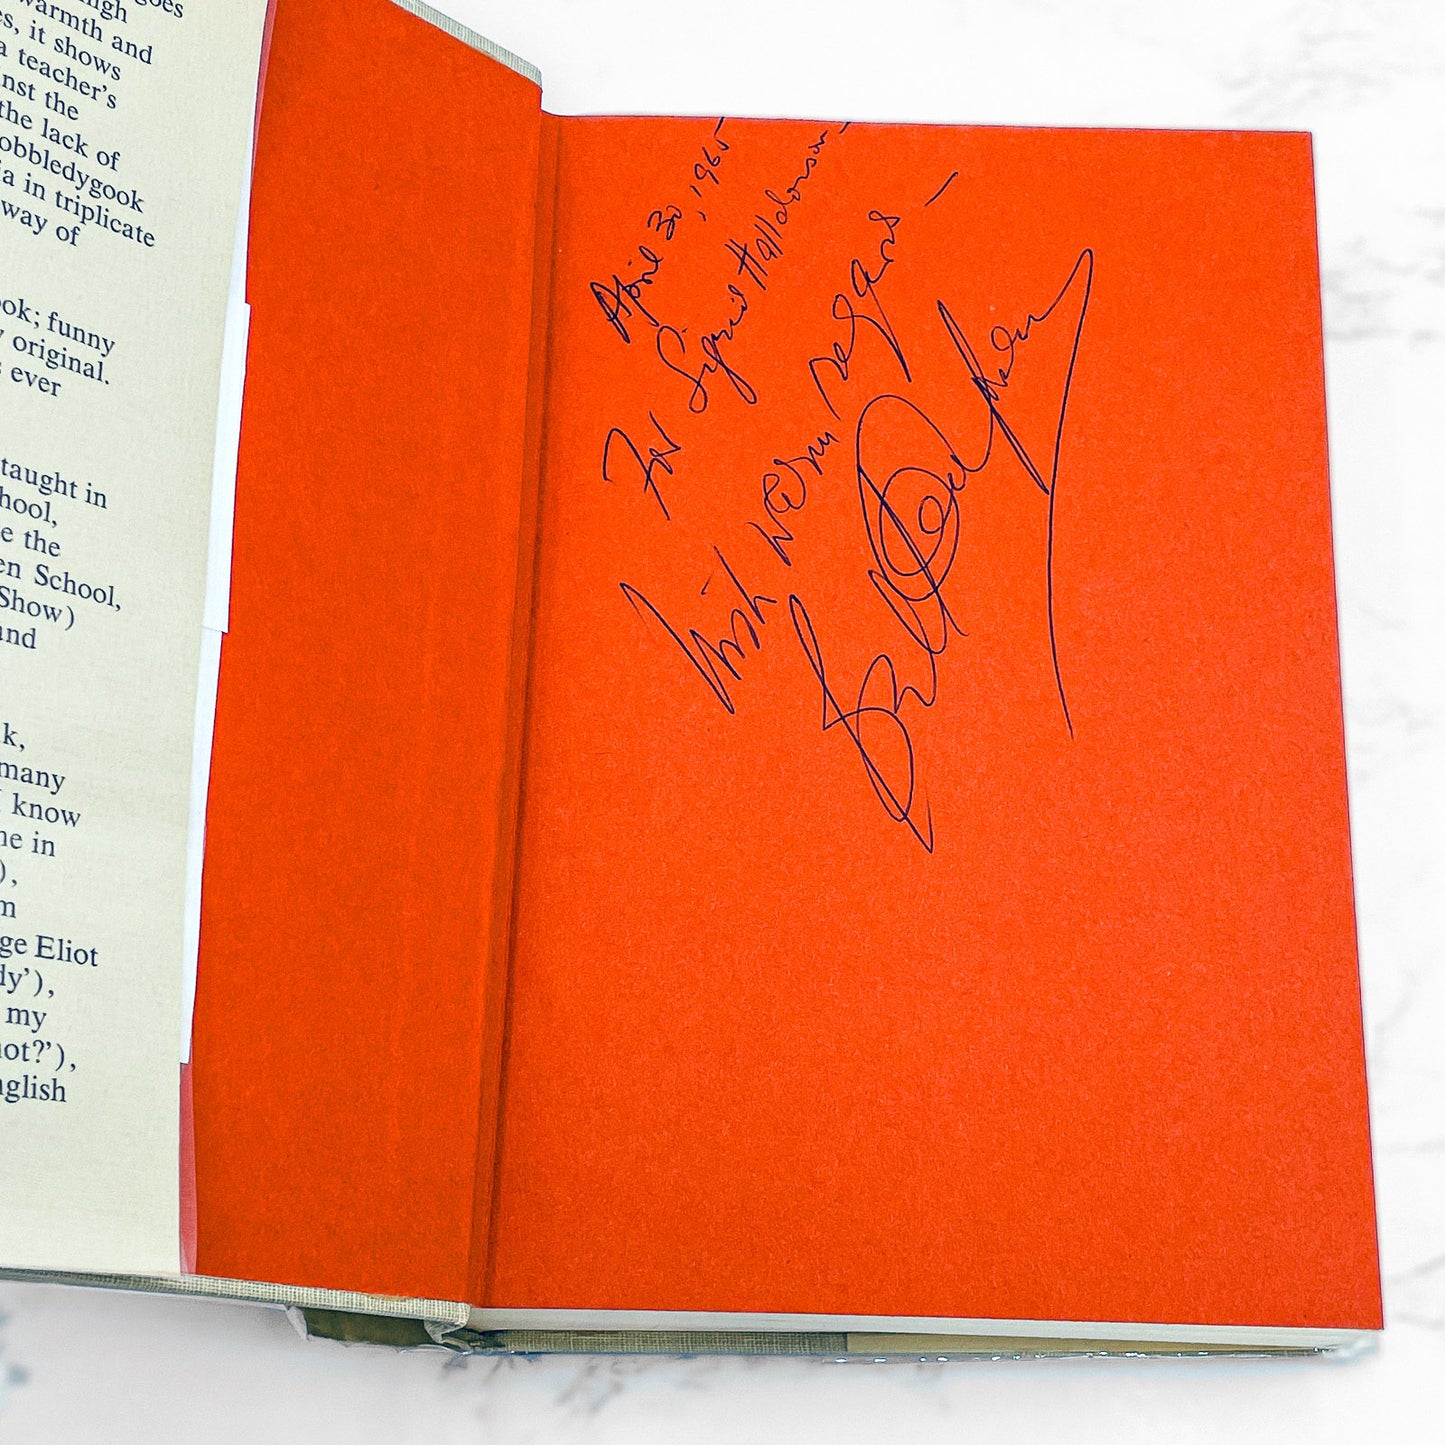 goes
high
warmth and
es, it shows
a teacher's
inst the
the lack of
obbledygook
ia in triplicate
way of
ook; funny
y original.
s ever
taught in
hool,
e the
en School,
Show)
and
k,
many
I know
me in
),
m
ge Eliot
dy'),
my
not?'),
nglish
April 30, 1965
For Sigrid Halldorson –
with warm regards –
Bel Kaufman